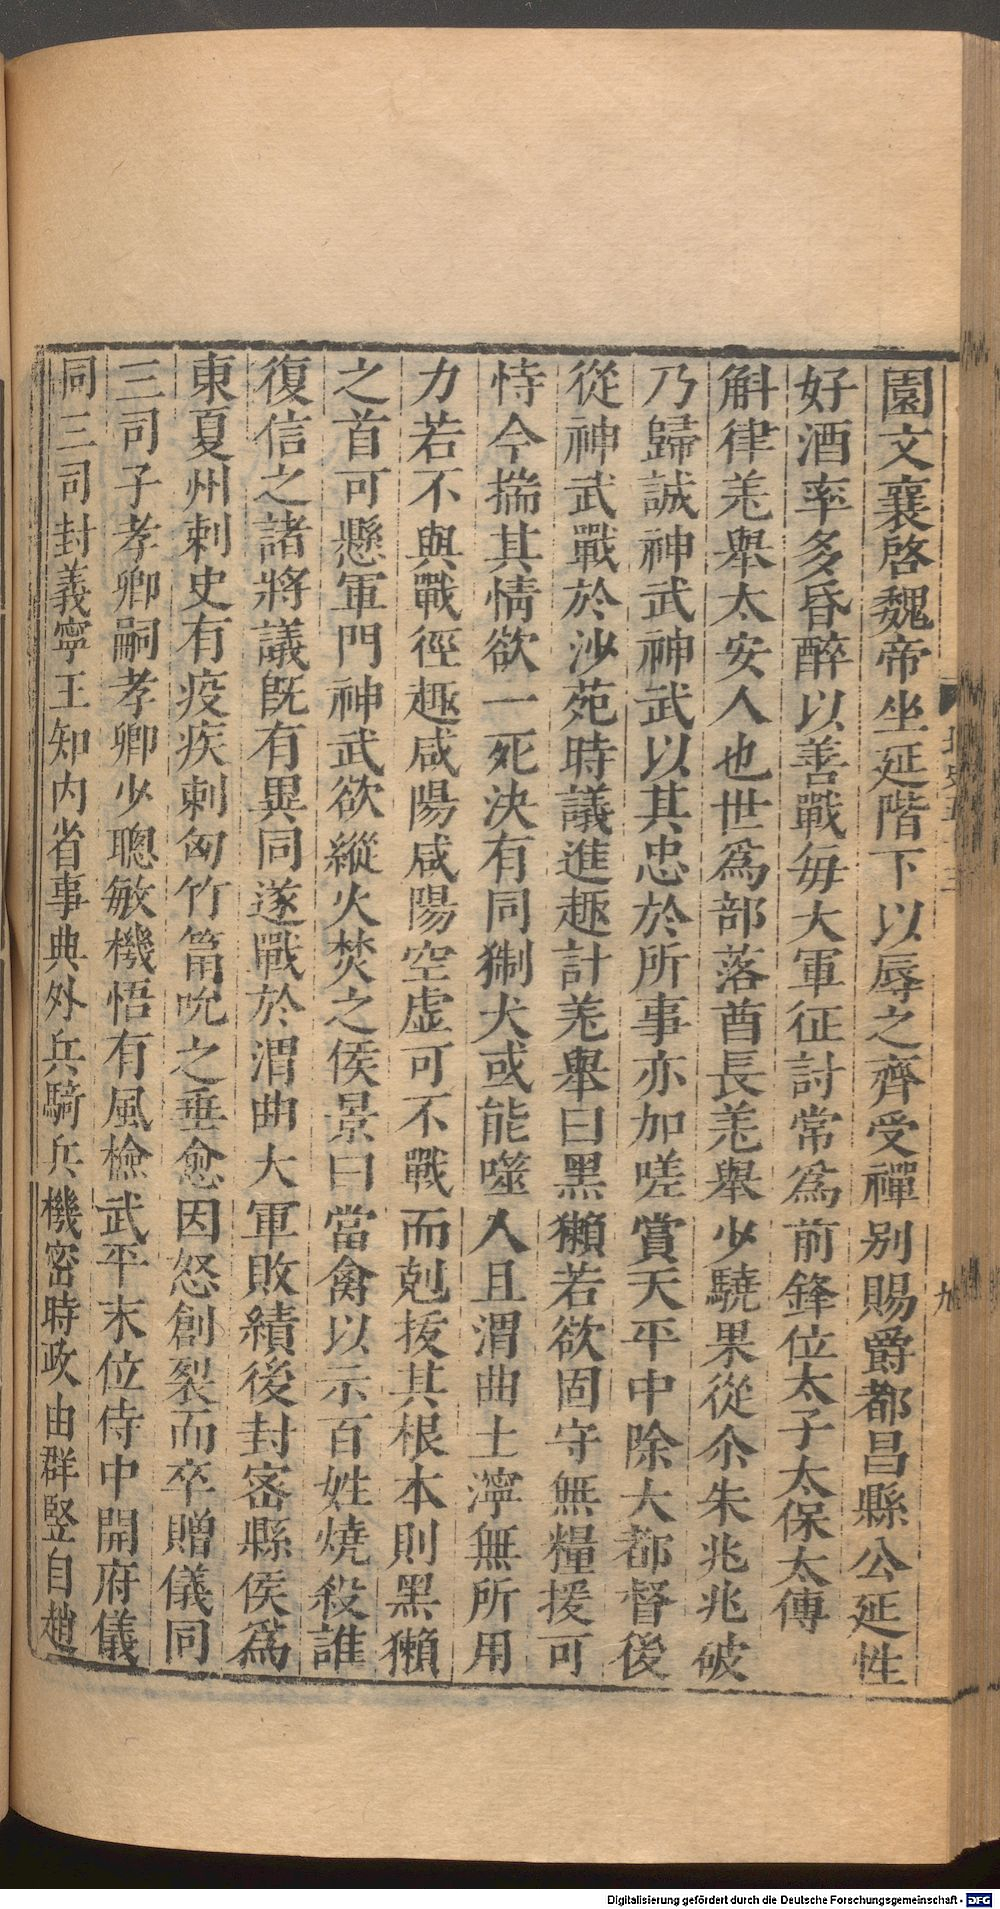 園文襄啓魏帝坐延階下以辱之齊受禪別賜爵都昌縣公延性
好酒率多昏醉以善戰毎大軍征討常爲前鋒位太子太保太傅
斛律羌舉太安人也世爲部落酋長羌舉少驍果從尒朱兆兆破
乃歸誠神武神武以其忠於所事亦加嗟賞天平中除大都督後
從神武戰於沙苑時議進趣計羌舉曰黑獺若欲固守無糧援可
恃今揣其情欲一死決有同猘犬或能噬人且渭曲土濘無所用
力若不與戰徑趣咸陽咸陽空虛可不戰而剋拔其根本則黑獺
之首可懸軍門神武欲縱火焚之侯景曰當禽以示百姓燒殺誰
復信之諸將議旣有異同遂戰於渭曲大軍敗績後封密縣侯爲
東夏州刺史有疫疾刺匈竹筩吮之垂愈因怒創裂而卒贈儀同
三司子孝卿嗣孝卿少聰敏機悟有風檢武平末位侍中開府儀
同三司封義寧王知内省事典外兵騎兵機密時政由群豎自趙
九
Digitalisierung gefördert durch die Deutsche Forschungsgemeinschaft - DFG